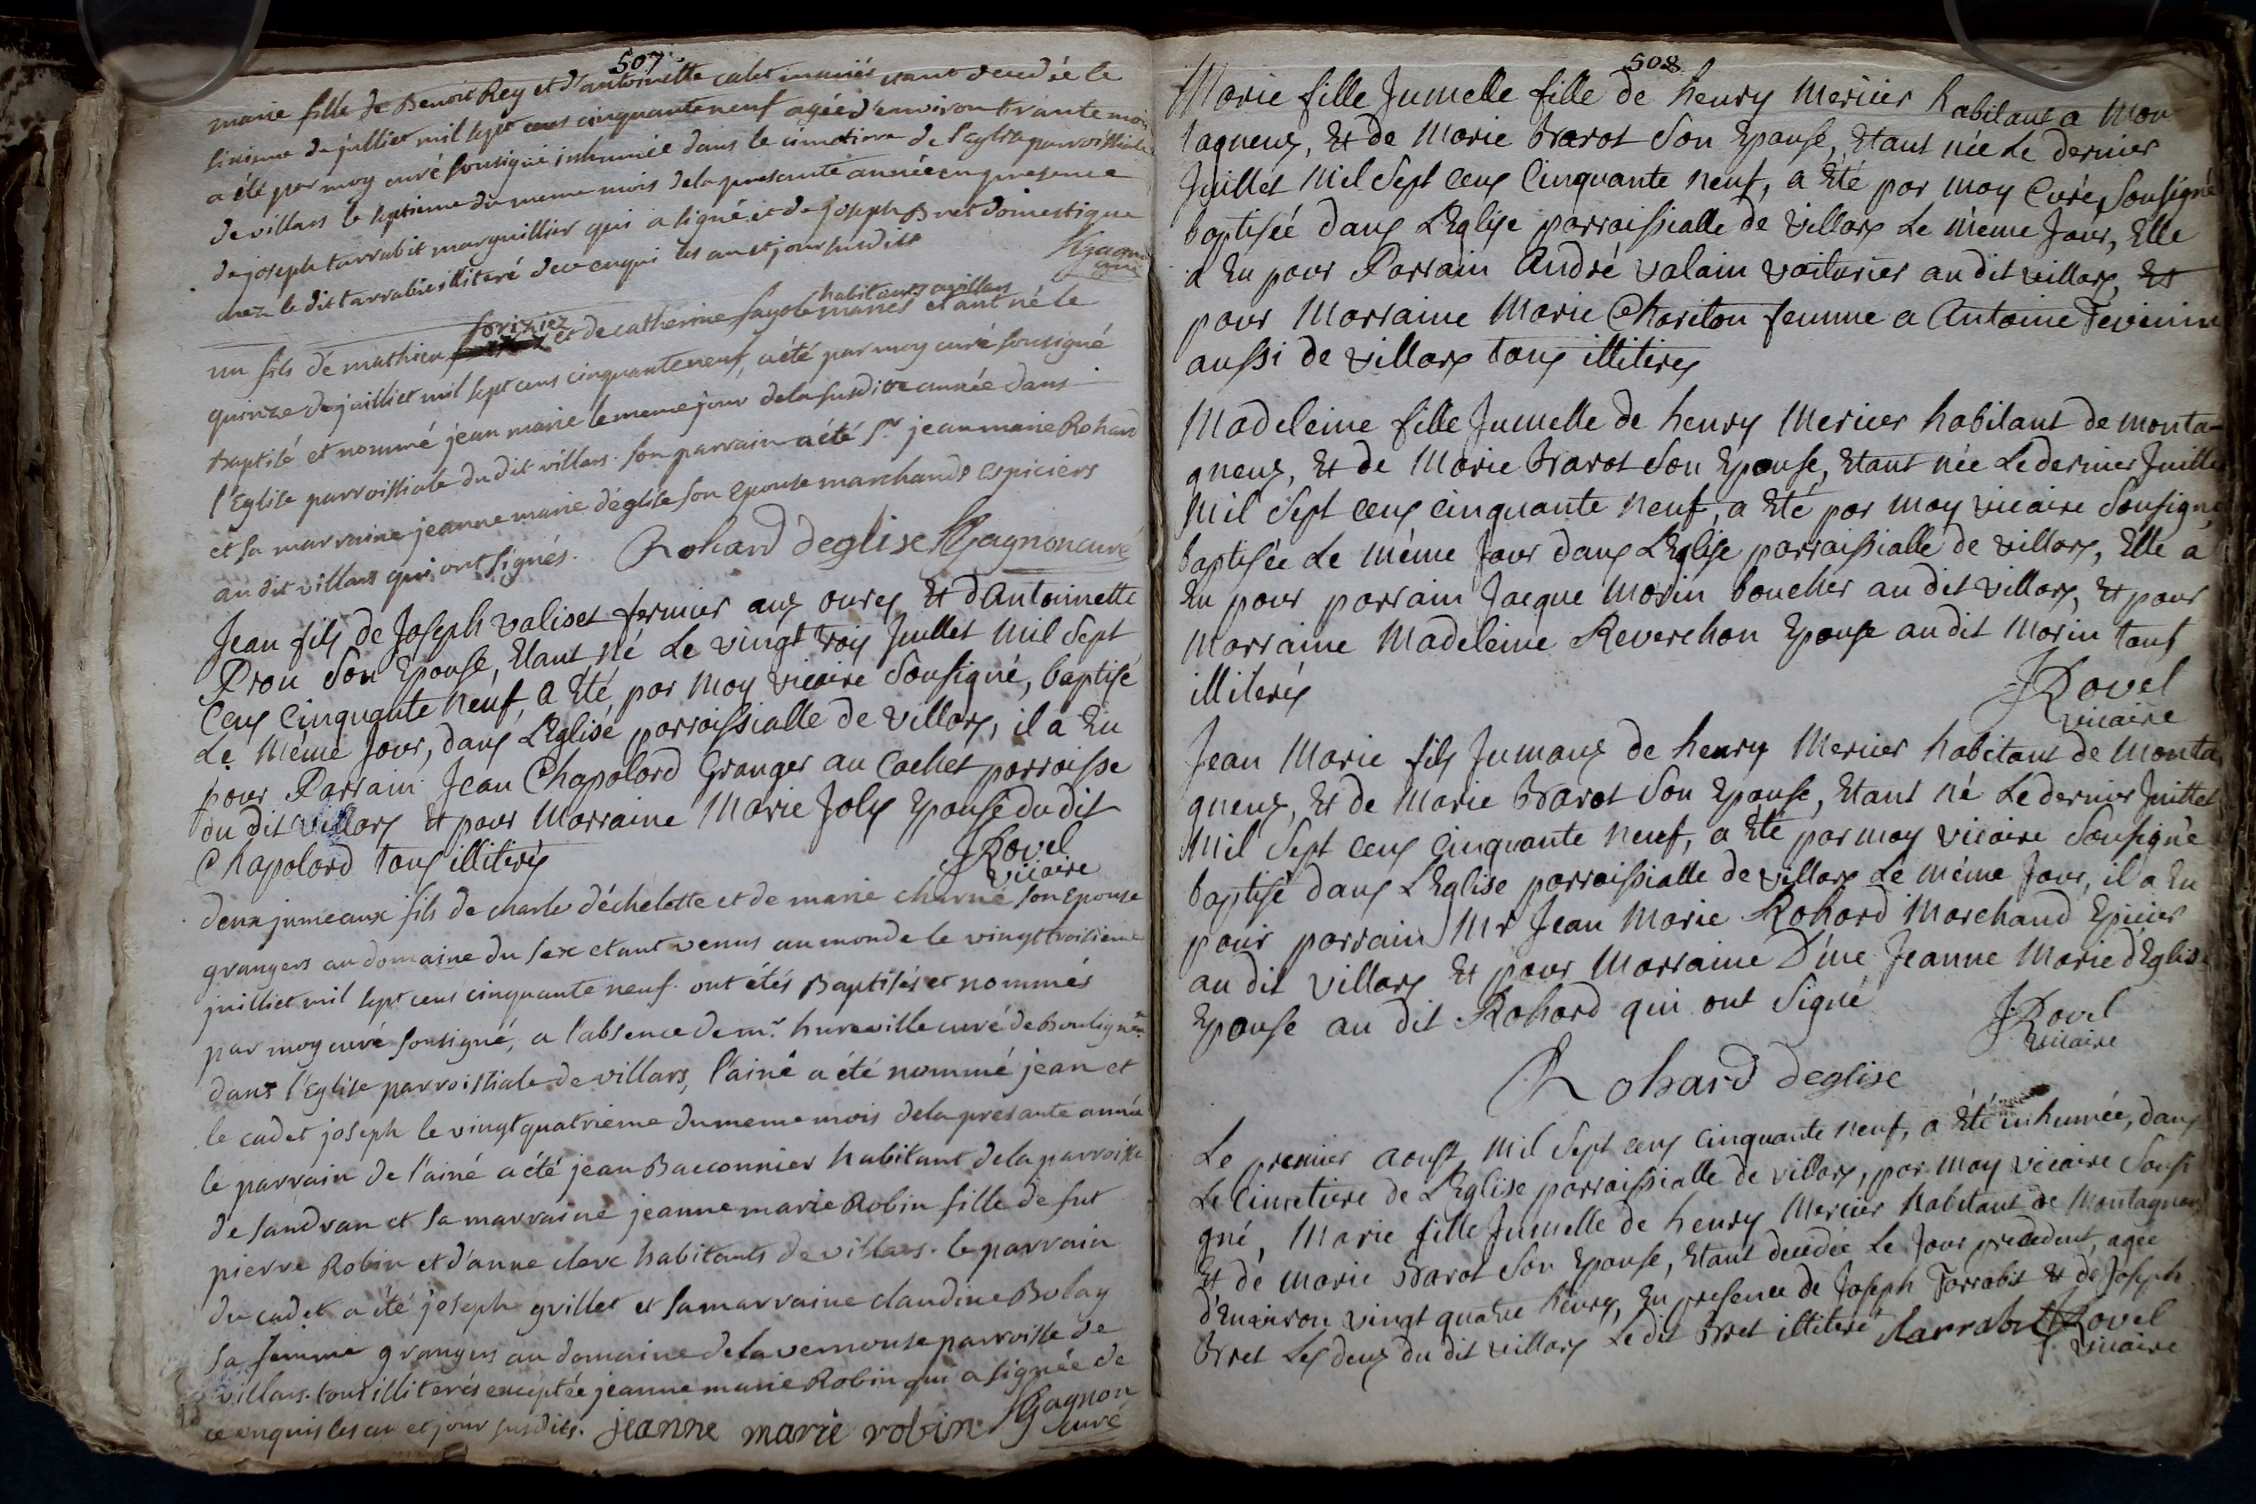 507
marie fille de Benoit Rey et d'antoinette calet mariés etant decedée le
sixieme de julliet mil sept cens cinquante neuf agée d'environ trante mois
a été par moy curé sousigné inhumée dans le cimetiere de l'eglise parroissiale
de villars le septieme du meme mois de la presante année en presence
de joseph tarrabit marguillier qui a signé et de joseph Bret domestique
chez le dit tarrabit illiteré de ce enquis les an et jour susdits
Gagnon curé
habitants a villars
foriziez
un fils de mathieu et de catherine fayole mariés etant né le
quinze de juilliet mil sept cens cinquante neuf, a été par moy curé sousigné
baptisé et nommé jean marie le meme jour de la susdite année dans
l'Eglise parroissiale du dit villars. son parrain a été sr jean marie Rohard
et sa marraine jeanne marie d'église son epouse marchands espiciers
au dit villars qui ont signés. Rohard d'eglise Gagnon curé
Jean fils de Joseph valiset fermier aux oures Et d'Antoinette
Prou Son Epouse, Etant Né Le vingt trois Juillet Mil Sept
Cens Cinquante Neuf, a Eté, par Moy vicaire Sousigné, baptisé
Le Même Jour, dans L'Eglise parroissialle de Villars, il a Eu
pour Parrain Jean Chapolard Granger au Cachet parroisse
du dit Villars Et pour Marraine Marie Joly Epouse du dit
Chapolard tous illiterés
JRovel
vicaire
deux jumeaux fils de charle déchelette et de marie charne son epouse
grangers au domaine du sex etant venus au monde le vingt troisieme
juilliet mil sept cens cinquante neuf. ont étés Baptisés et nommés
par moy curé sousigné, a l'absence de mr. hureville curé de Boulignieu
dans l'Eglise parroissiale de villars, l'ainé a été nommé jean et
le cadet joseph le vingt quatrieme du meme mois de la presante année
le parrain de l'ainé a été jean Bacconnier habitant de la parroisse
de sandran et sa marraine jeanne marie Robin fille de fut
pierre Robin et d'anne clerc habitants de villars. le parrain
du cadet a été joseph grillet et sa marraine claudine Bolay
sa femme grangers au domaine de la vernouse parroisse de
villars. tous illiterés exceptée jeanne marie Robin qui a signée de
ce enquis les an et jour susdits. jeanne marie robin Gagnon
curé
508
Marie fille Jumelle fille de henry Mericer habitant a Mon
tagneux, Et de Marie Brarot Son Epouse, Etant née Le dernier
Juillet Mil Sept Cens Cinquante Neuf, a Eté par Moy Curé Sousigné
baptisée dans L'Eglise parroissialle de Villars Le Même Jour, Elle
a Eu pour Parrain André valain voiturier au dit villars, Et
pour Marraine Marie Chariton femme a Antoine Tevenin
aussi de villars tous illiterés
Madeleine fille Jumelle de henry Mericer habitant de monta-
gneux, Et de Marie Brarot Son Epouse, Etant née Le dernier Juillet
Mil Sept Cens Cinquante Neuf, a Eté par moy vicaire Sousigné
baptisée Le Même Jour dans L'Eglise parroissialle de Villars, Elle a
Eu pour parrain Jacque Morin boucher au dit Villars, Et pour
Marraine Madeleine Reverchon Epouse au dit Morin tous
illiterés
JRovel
vicaire
Jean Marie fils Jumaux de henry Mericer habitant de Monta
gneux, Et de Marie Brarot Son Epouse, Etant Né Le dernier Juillet
Mil Sept Cens Cinquante Neuf, a Eté par moy vicaire Sousigné
baptisé dans L'Eglise parroissialle de Villars Le Même Jour, il a Eu
pour parrain Mr Jean Marie Rohard Marchand Epicier
au dit Villars Et pour Marraine D'me Jeanne Marie d'Eglise
Epouse au dit Rohard qui ont Signé
JRovel
vicaire
Rohard deglise
Le premier Aoust Mil Sept Cens Cinquante Neuf, a Eté inhumée, dans
Le Cimetiere de L'Eglise parroissialle de Villars, par Moy Vicaire Sousi
gné, Marie fille Jumelle de henry Mercier habitant de Montagneux
Et de Marie Brarot Son Epouse, Etant decedée Le Jour precedent, agée
d'Environ vingt quatre heures, En presence de Joseph Tarrabit Et de Joseph
Bret Les deux du dit villars Le dit Bret illiteré Tarrabit JRovel
vicaire